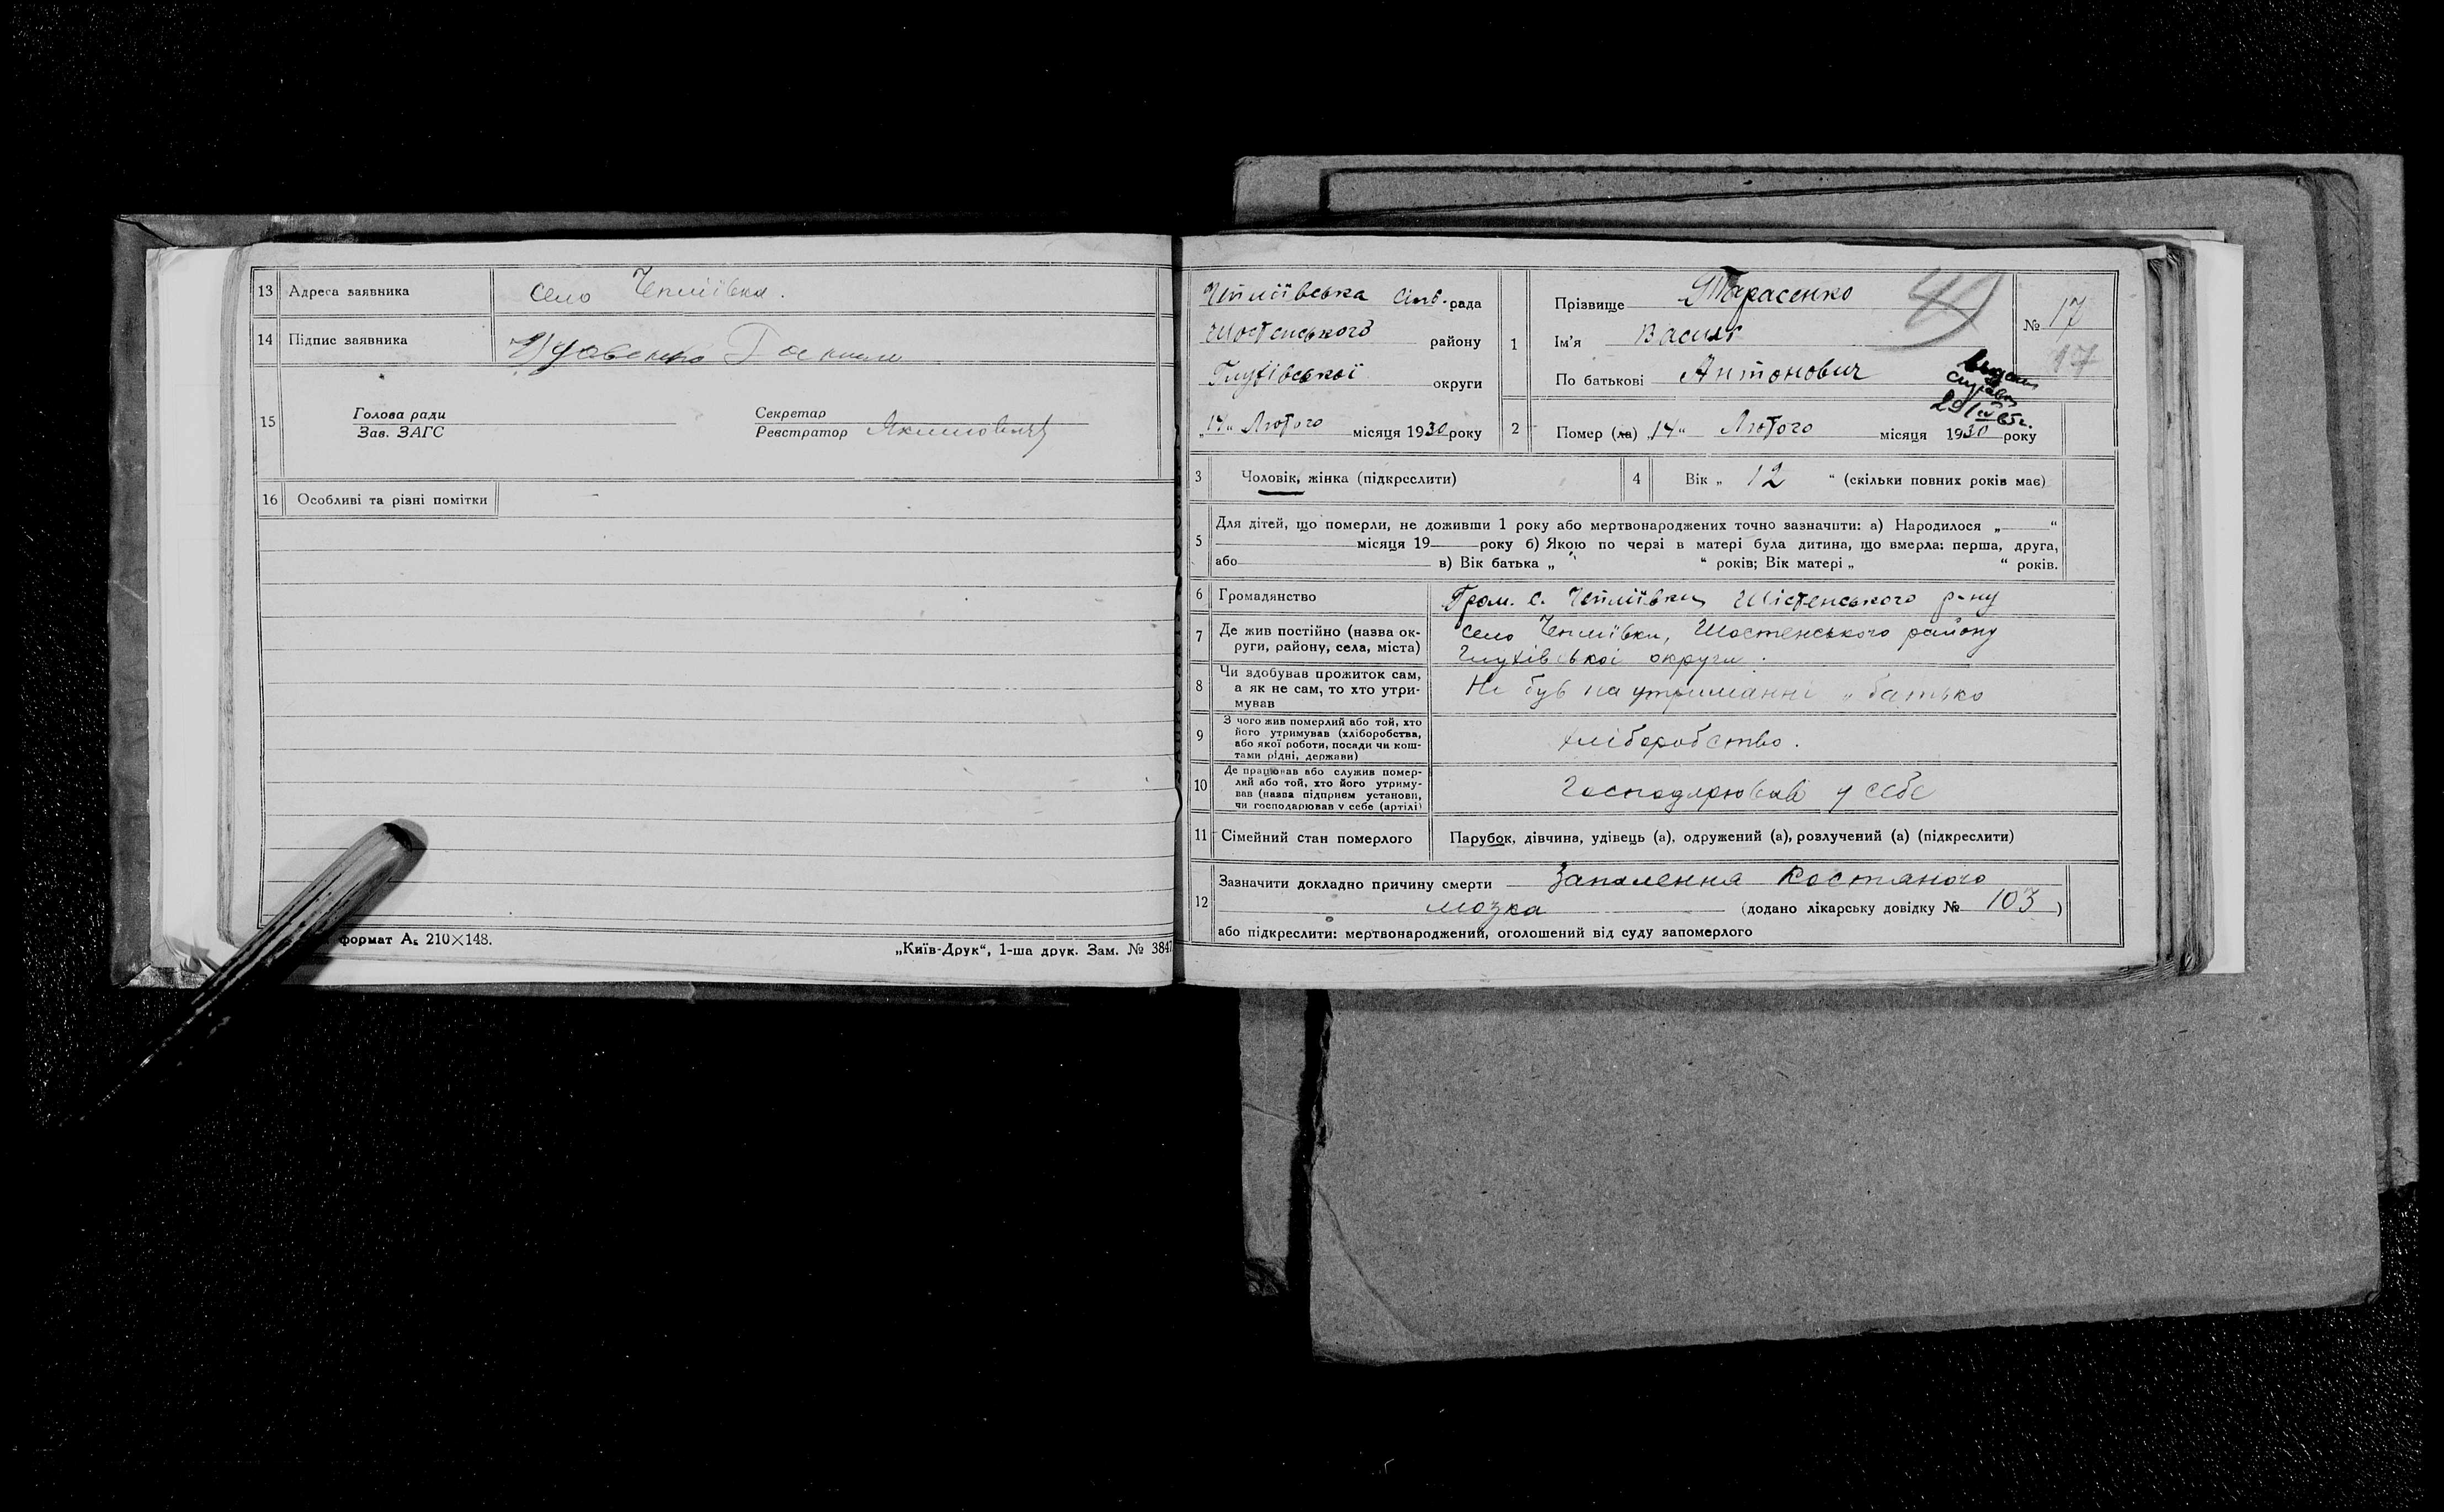 13 Адреса заявника село Чепліївка.
14 Підпис заявника Удовенко
15 Голова ради
Зав. ЗАГС
Секретар
Реєстратор Якимович
16 Особливі та різні помітки
формат А₅ 210×148.
„Київ-Друк“, 1-ша друк. Зам. № 3847
Чепліївська сіль. рада
Шостенського району
Глухівської округи
„14“ Лютого місяця 1930 року
1 Прізвище Тарасенко
Ім'я Василь
По батькові Антонович
№ 17
17
49
29/IV 65г.
2 Помер (ла) „14“ Лютого місяця 1930 року
3 Чоловік, жінка (підкреслити)
4 Вік „ 12 “ (скільки повних років має)
5 Для дітей, що померли, не доживши 1 року або мертвонароджених точно зазначити: а) Народилося „ “
місяця 19 року б) Якою по черзі в матері була дитина, що вмерла: перша, друга,
або в) Вік батька „ “ років; Вік матері „ “ років.
6 Громадянство Гром. с. Чепліївки Шостенського р-ну
7 Де жив постійно (назва округи, району, села, міста) село Чепліївка, Шостенського району
Глухівської округи.
8 Чи здобував прожиток сам, а як не сам, то хто утримував Ні був на утриманні батько
9 З чого жив померлий або той, хто його утримував (хліборобства, або якої роботи, посади чи коштами рідні, держави) хліборобство.
10 Де працював або служив померлий або той, хто його утримував (назва підприєм установи, чи господарював у себе (артілі) Господарював у себе
11 Сімейний стан померлого Парубок, дівчина, удівець (а), одружений (а), розлучений (а) (підкреслити)
12 Зазначити докладно причину смерти Запалення Костяного
мозка (додано лікарську довідку № 103 )
або підкреслити: мертвонароджений, оголошений від суду запомерлого